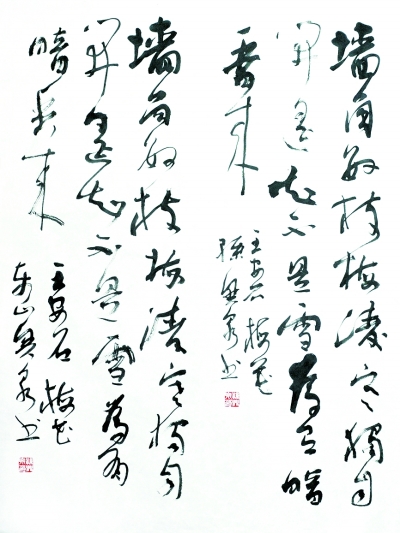 墙角数枝梅凌寒獨自
開遥知不是雪為有暗
香来
王安石梅花
興泉书
墙角数枝梅凌寒獨自
開遥知不是雪為有
暗香来
王安石梅花
山興泉书